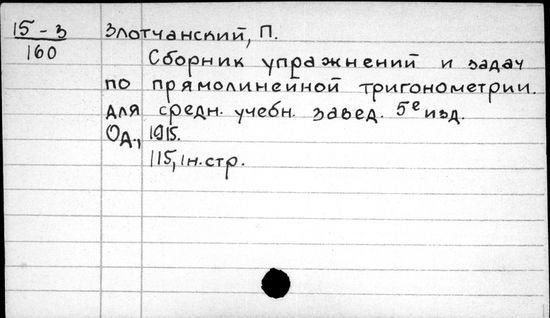 15-3 Злотчанский, П.
160
Сборник упражнений и задач
по прямолинейной тригонометрии.
для средн. учебн. завед. 5е изд.
Од., 1915.
115, 1н.стр.